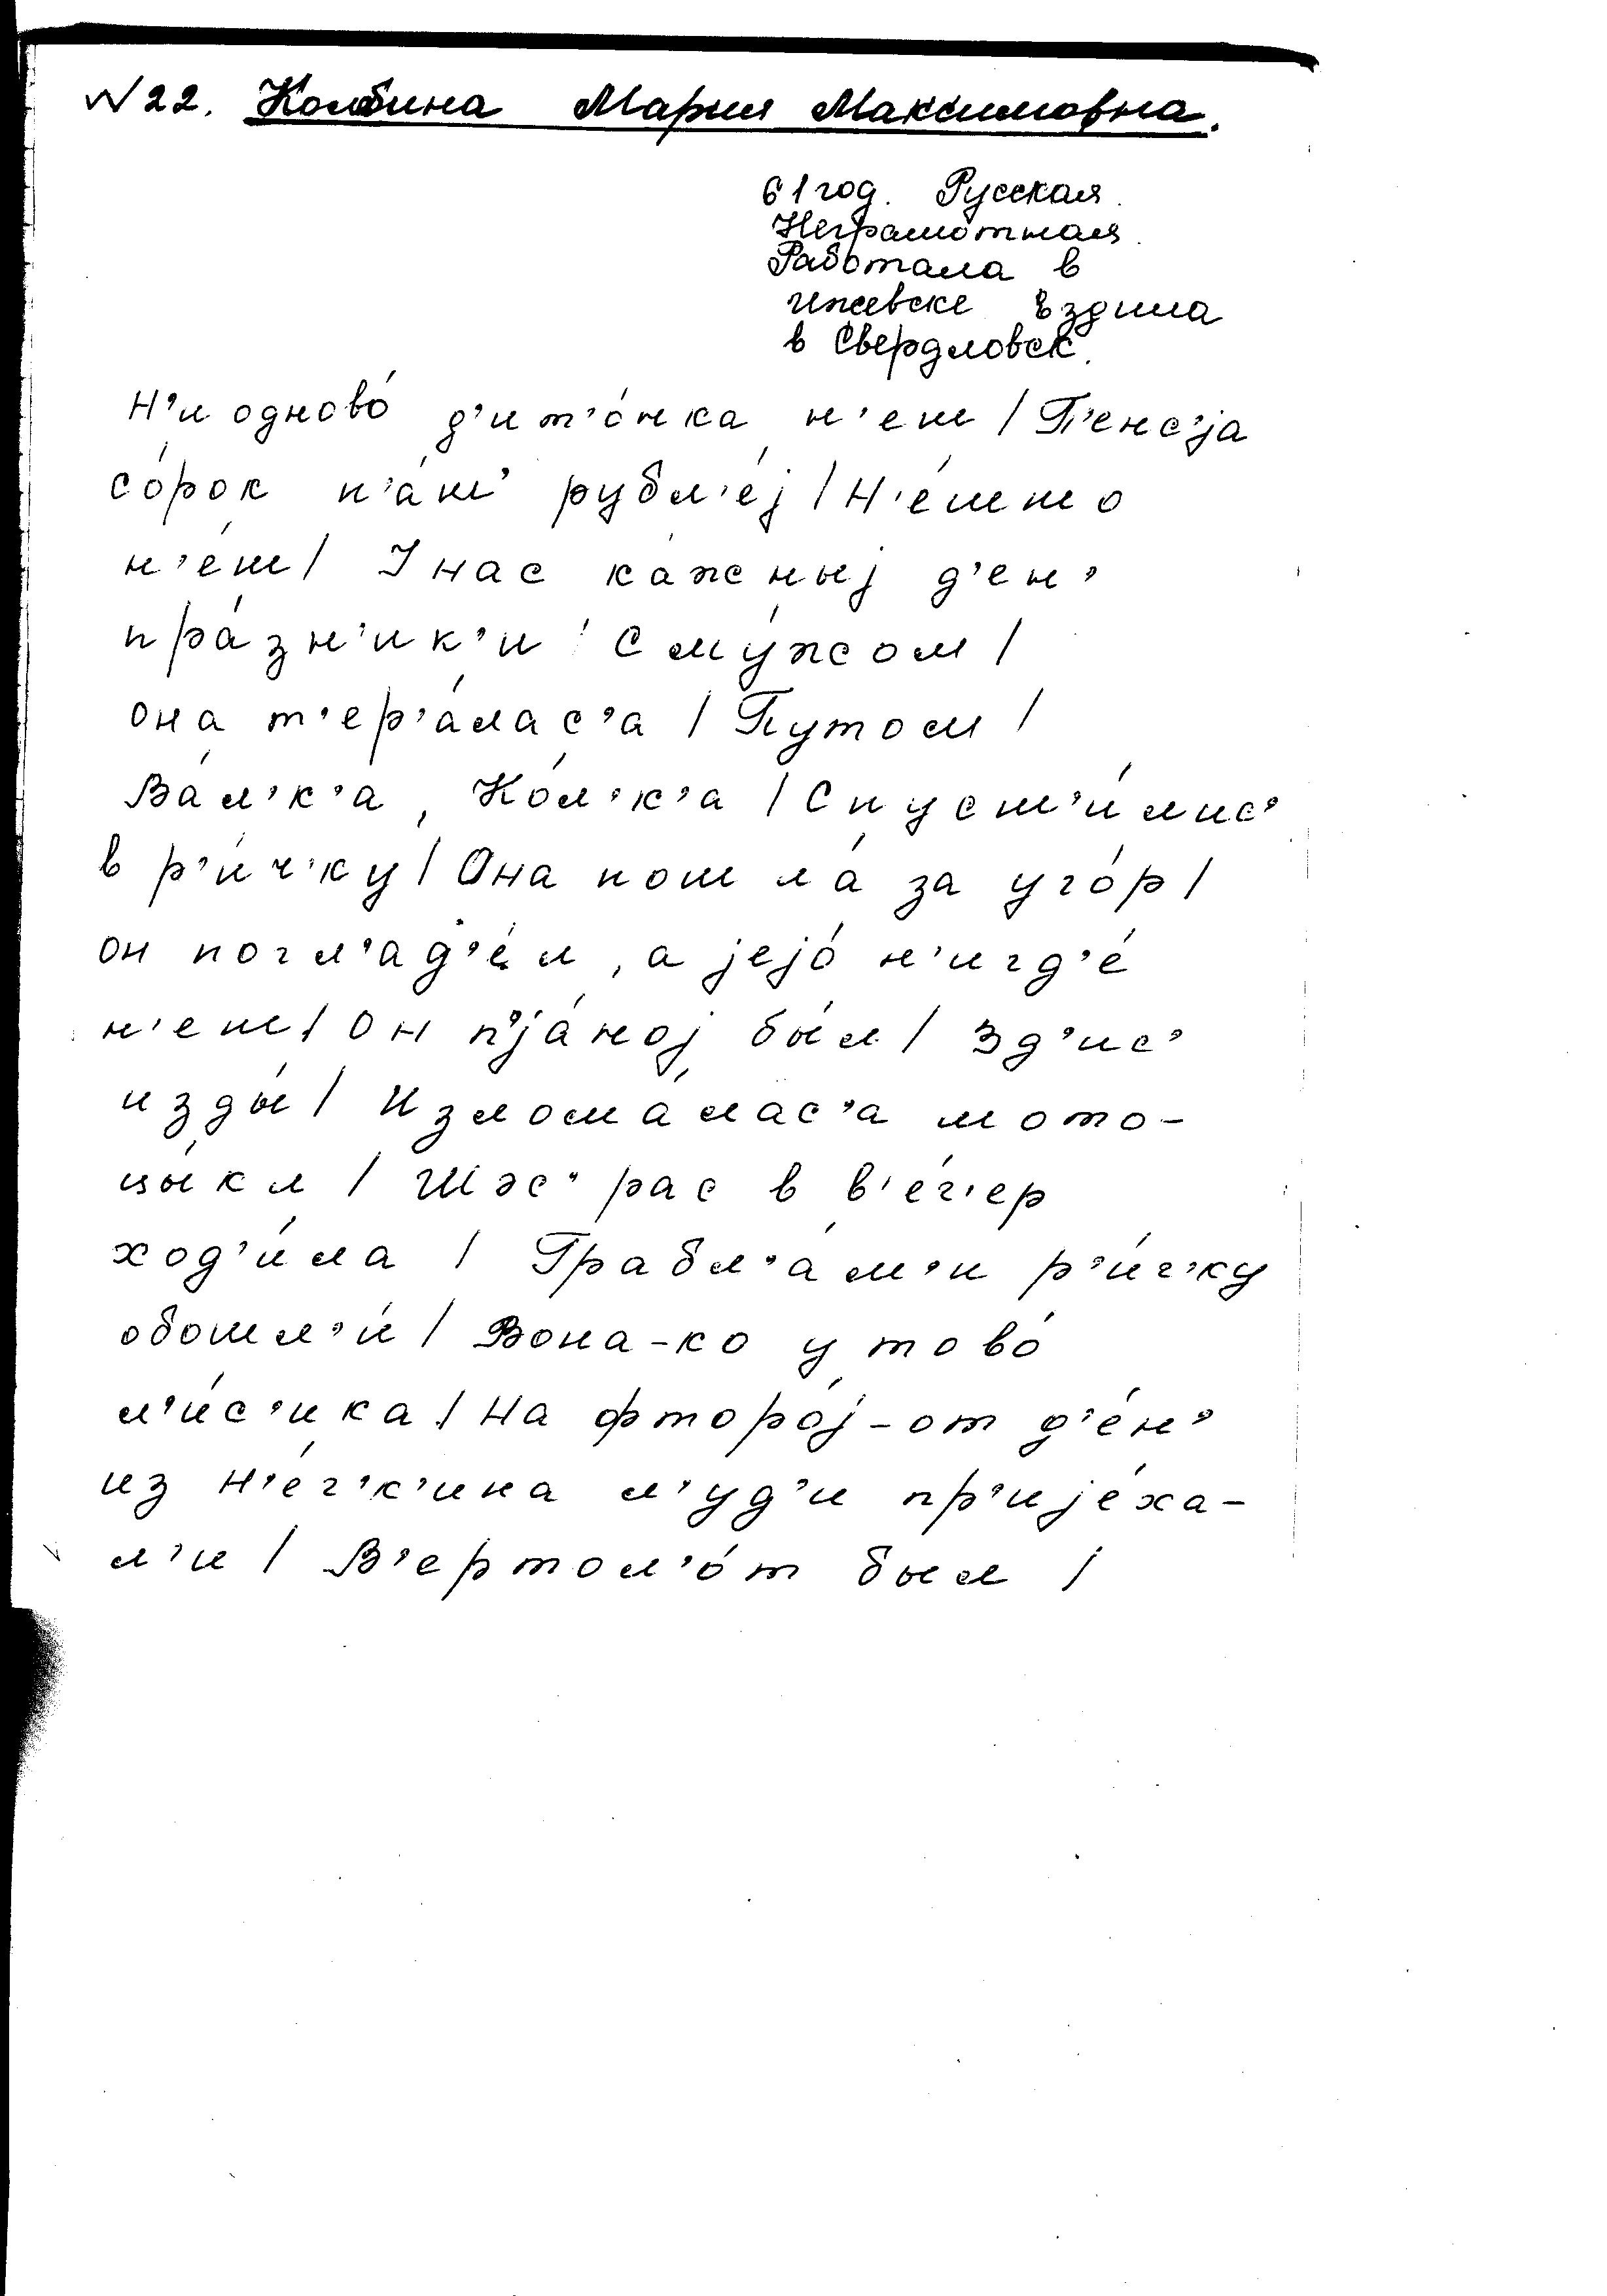 N 22. Колбина Мария Максимовна.
61 год. Русская.
Неграмотная.
Работала в
Ижевске Ездила
в Свердловск.
Н'и одново́ д'ит'о́нка н'ет / П'е́нс'jа
со́рок п'а́т' рубл'е́j / Н'е́што
н'е́т / У нас ка́жныj д'ен'
пра́зн'ик'и / С му́жом /
она т'ер'а́лас'а / Путом /
Ва́л'к'а, Ко́л'к'а / Спуст'и́лис'
в р'и́ч'ку / Она пошла́ за уго́р /
он погл'ад'е́л, а jejо́ н'игд'е́
н'ет / Он п'jа́ноj бы́л / Зд'ис'
изды́ / Излома́лас'а мото-
цы́кл / Шэс' рас в в'е́ч'ер
ход'и́ла / Грабл'а́м'и р'и́ч'ку
обошл'и́ / Вона-ко у тово́
л'и́с'ика / На фторо́j-от д'е́н'
из Н'е́ч'к'ина л'уд'и пр'иjе́ха-
л'и / В'ертол'о́т был /